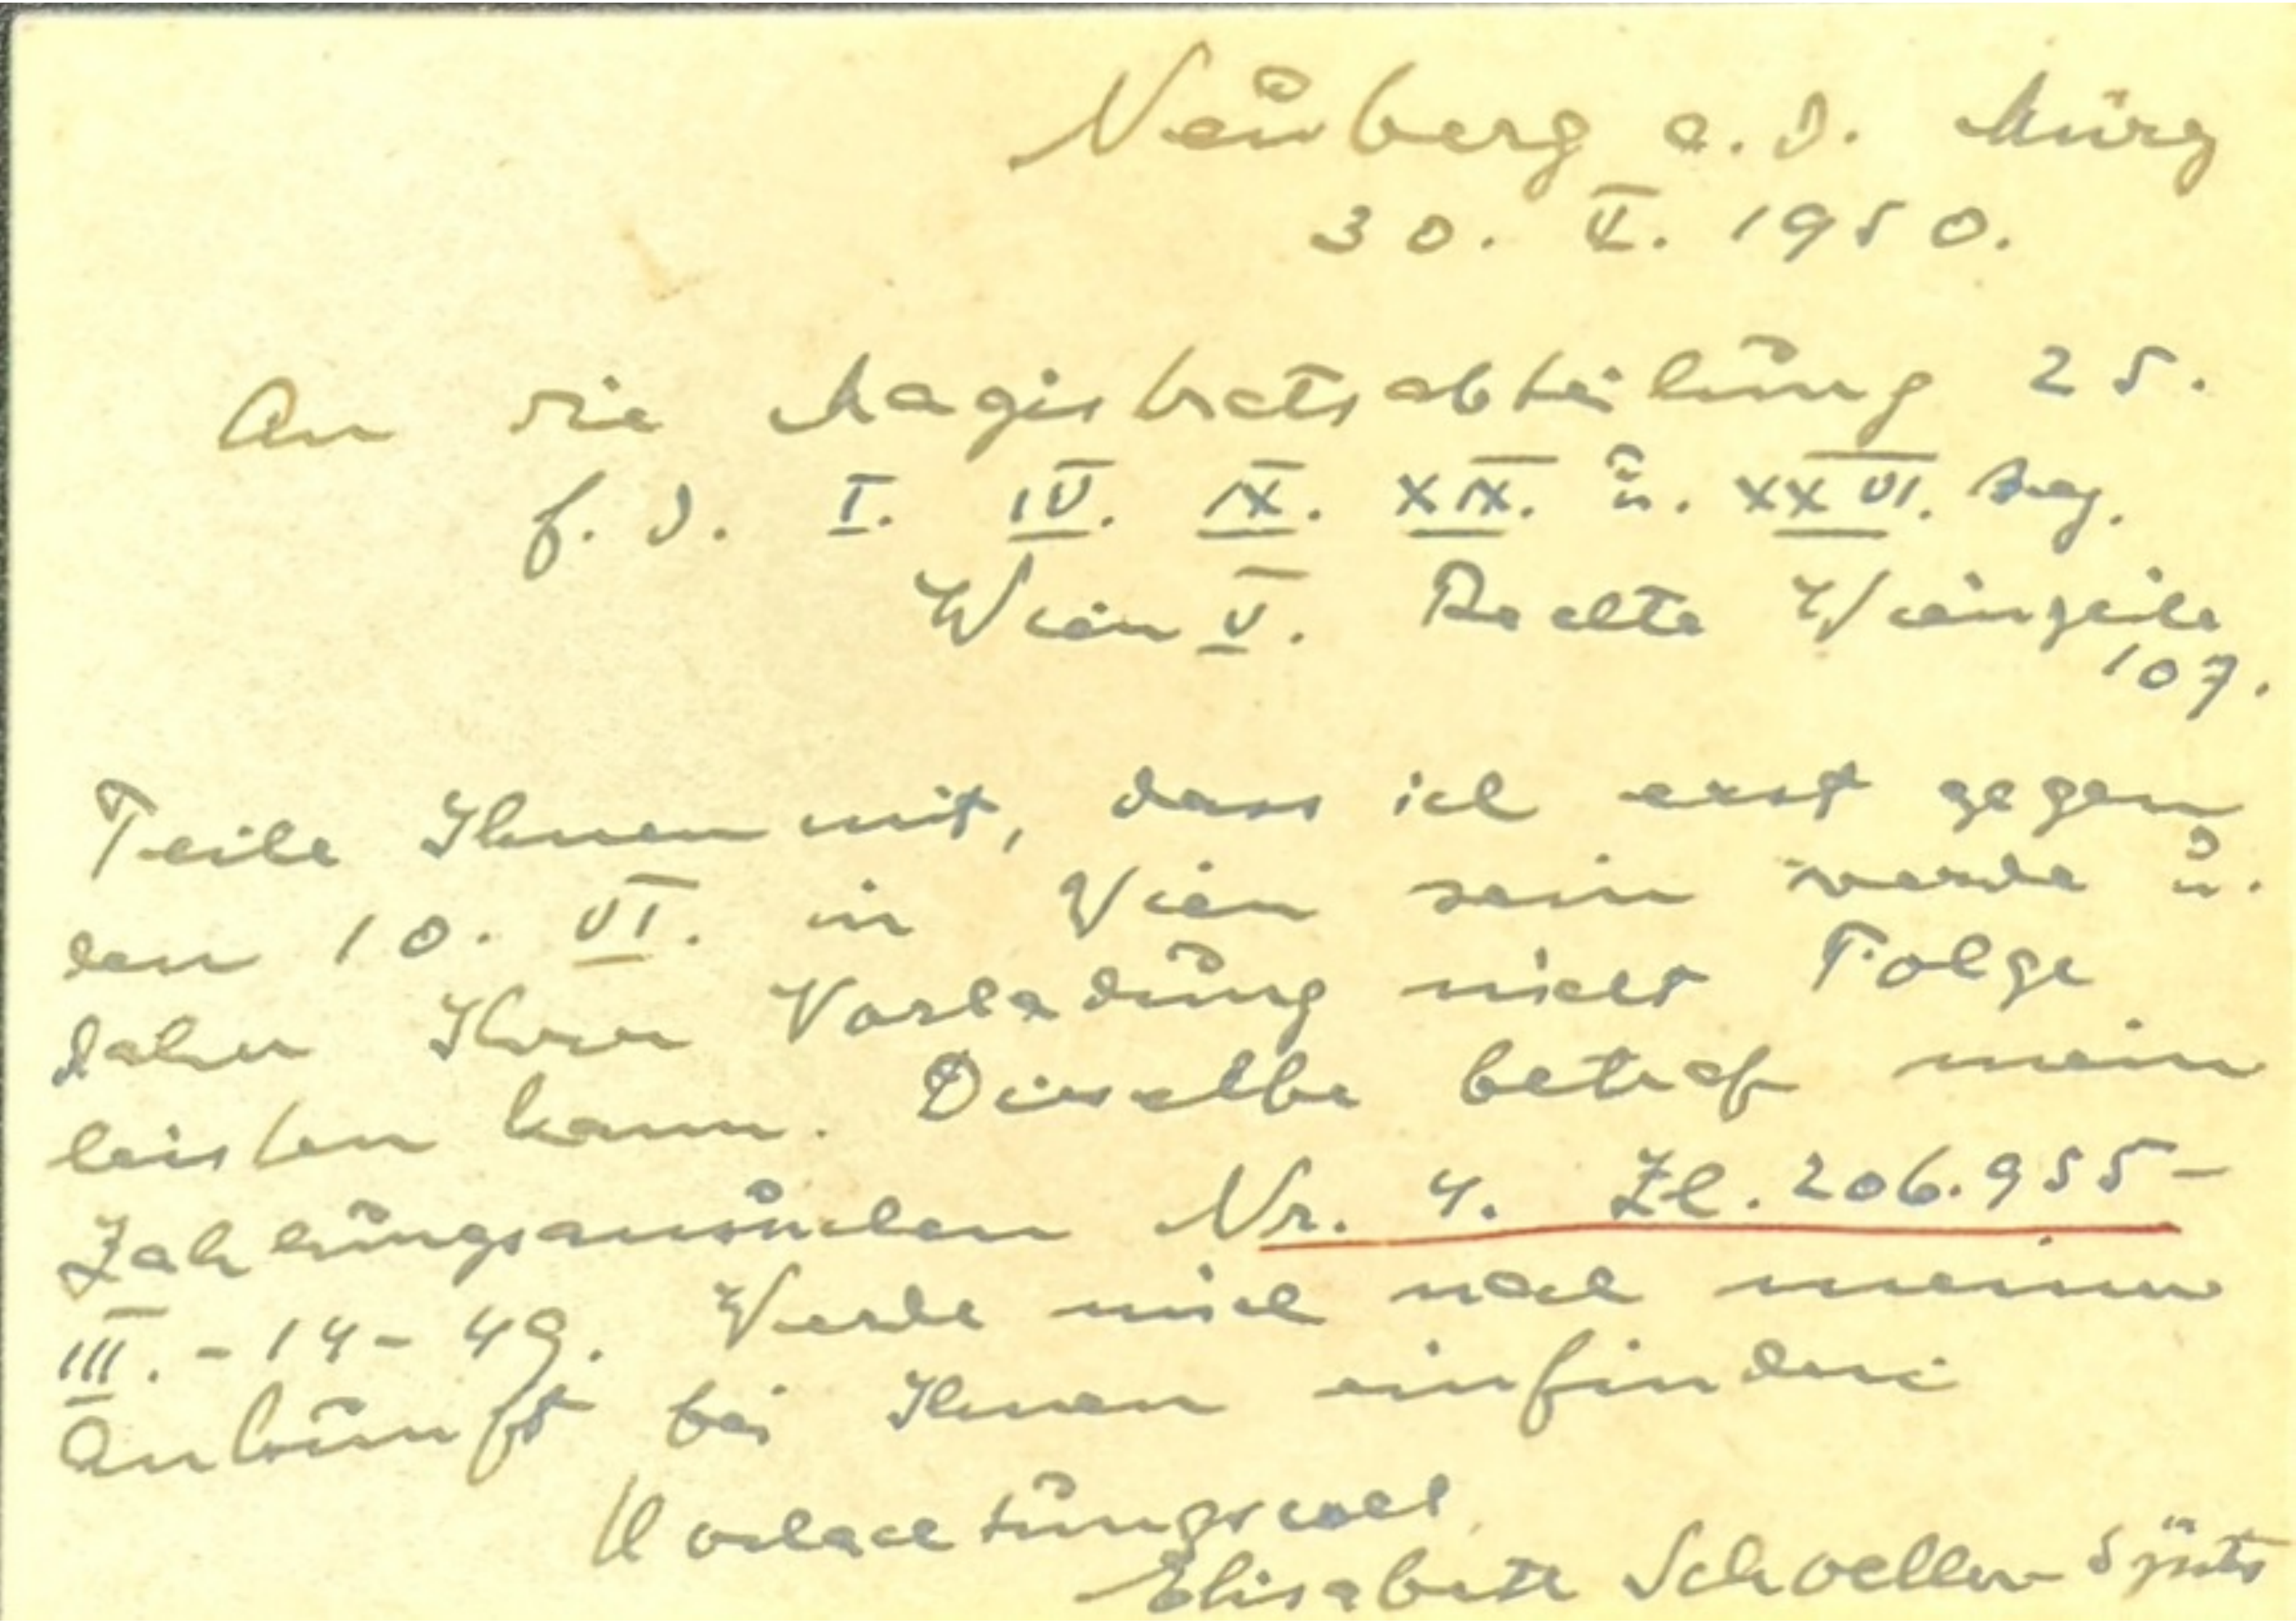 Neuberg a. d. Mürz
30. V. 1950.
An die Magistratsabteilung 25.
f. d. I. IV. IX. XIX. u. XXVI. Bez.
Wien V. Rechte Wienzeile
107.
Teile Ihnen mit, dass ich erst gegen
den 10. VI. in Wien sein werde u.
daher Ihrer Vorladung nicht Folge
leisten kann. Dieselbe betraf mein
Zahlungsansuchen Nr. 4. Zl. 206.955-
III.-14-49. Werde mich nach meiner
Ankunft bei Ihnen einfinden.
Hochachtungsvoll
Elisabeth Schoeller